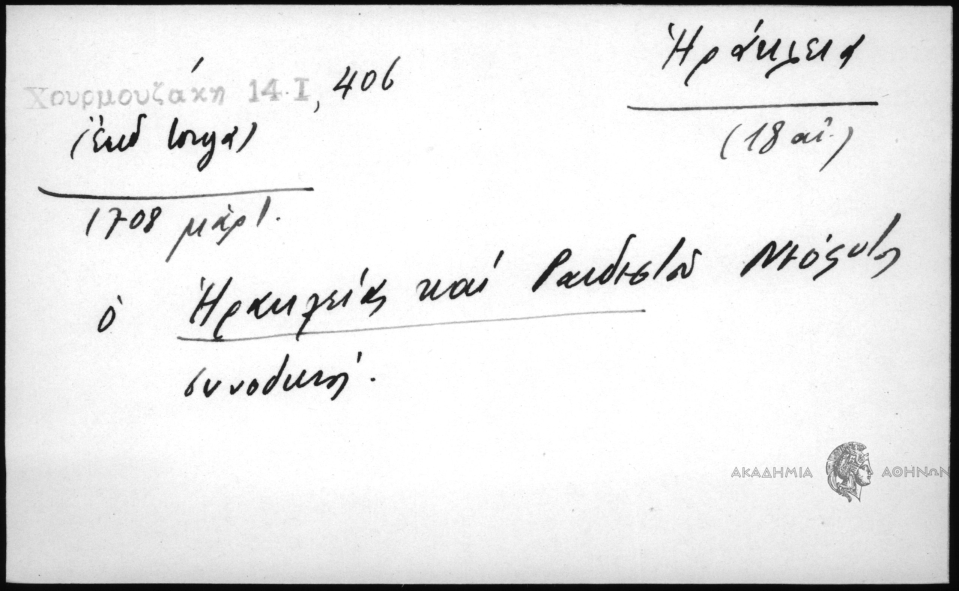 Ἡράκλεια
(18 αἰ.)
Χουρμουζάκη 14 I, 406
(ἐκδ Ἰόργα)
1708 μάρτ.
ὁ Ἡρακλείας καὶ Ραιδεστοῦ Νεόφυτος
συνοδική.
ΑΚΑΔΗΜΙΑ ΑΘΗΝΩΝ